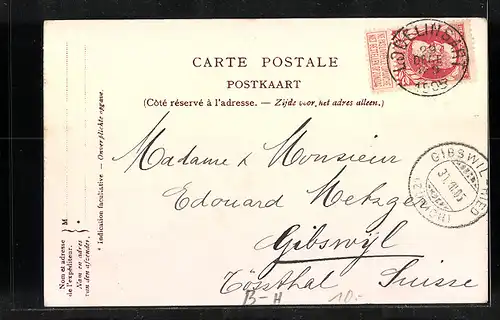 CARTE POSTALE
POSTKAART
(Côté réservé à l'adresse. — Zijde voor het adres alleen.)
LODELINSART
29
DECE
1905
GIBSWIL-RIED
31.XII.05
(ZÜRICH)
Madame & Monsieur
Edouard Metzger
Gibswyl
Tössthal Suisse
B-H 10.-
Nom et adresse
de l'expéditeur. } M
Naam en adres
van den afzender. } *
* Indication facultative — Onverplichte opgave.